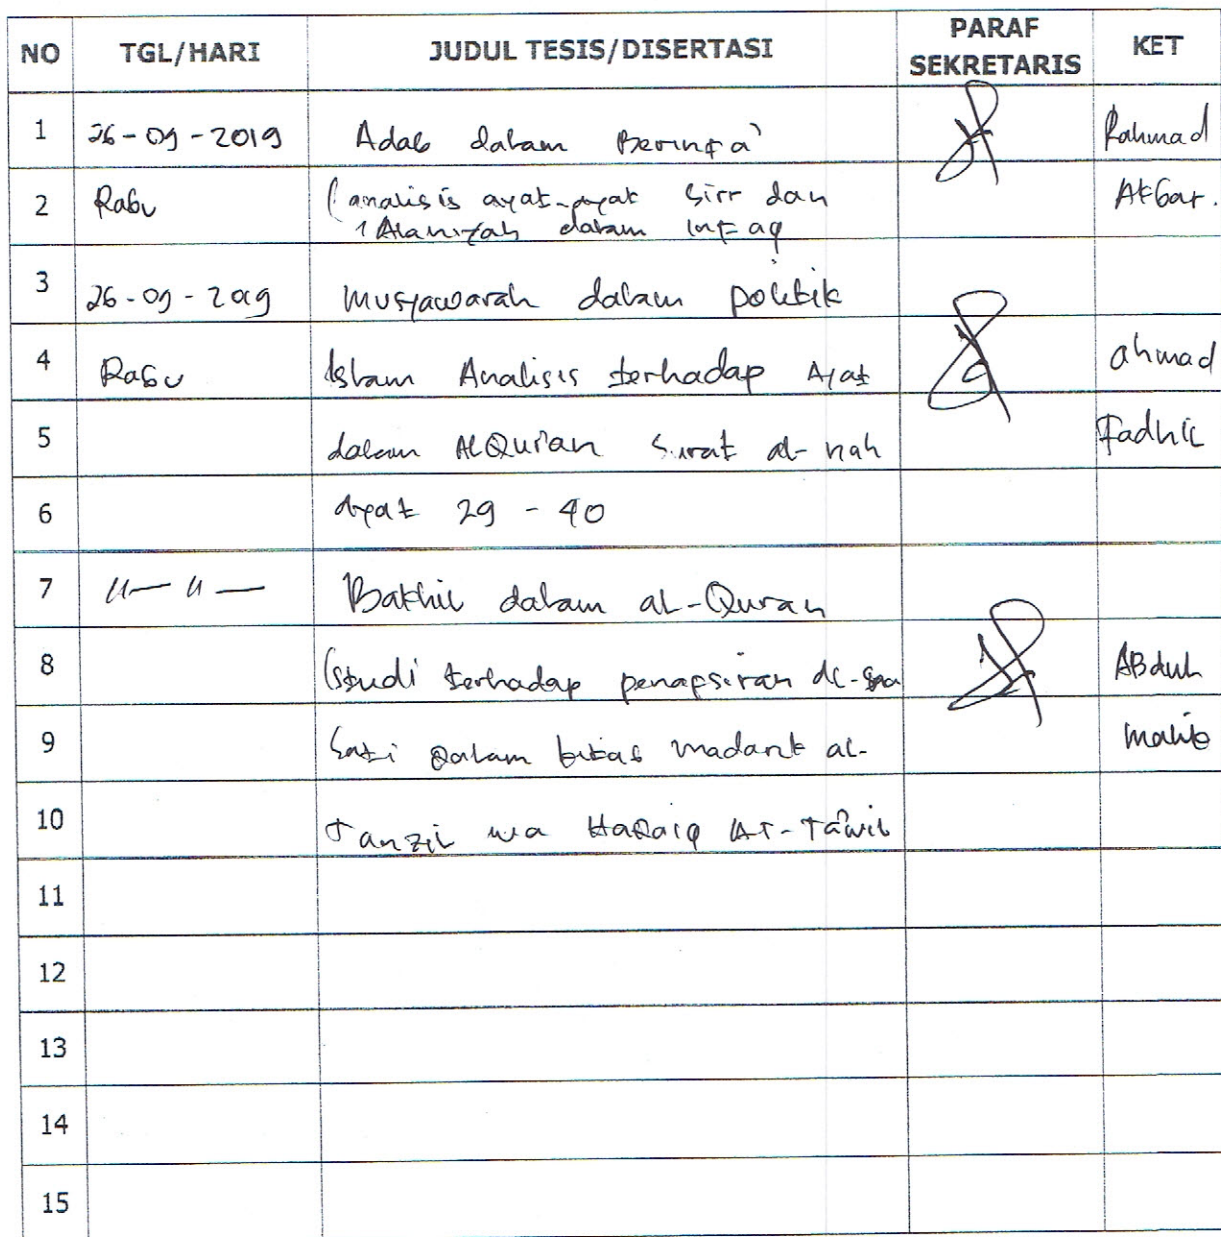 NO TGL/HARI JUDUL TESIS/DISERTASI PARAF SEKRETARIS KET
1 26-09-2019 Adab dalam Berinfa' Rahmad
2 Rabu (analisis ayat-ayat Sirr dan 'Alaniyah dalam Infaq Akbar.
3 26-09-2019 Musyawarah dalam politik
4 Rabu Islam Analisis terhadap Ayat ahmad
5 dalam AlQuran Surat al-nah Fadhil
6 Ayat 29 - 40
7 〃— 〃— Bakhil dalam al-Quran
8 (studi terhadap penafsiran al- ABdul
9 dalam kitab madarik al- malik
10 Tanzil wa HaQaiq At-Ta'wil
11
12
13
14
15